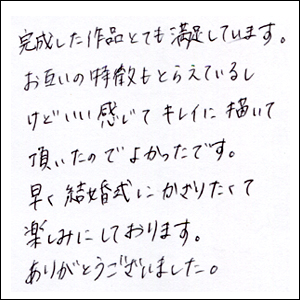 完成した作品とても満足しています。
お互いの特徴もとらえているし
けどいい感じで キレイに描いて
頂いたのでよかったです。
早く結婚式にかざりたくて
楽しみにしております。
ありがとうございました。